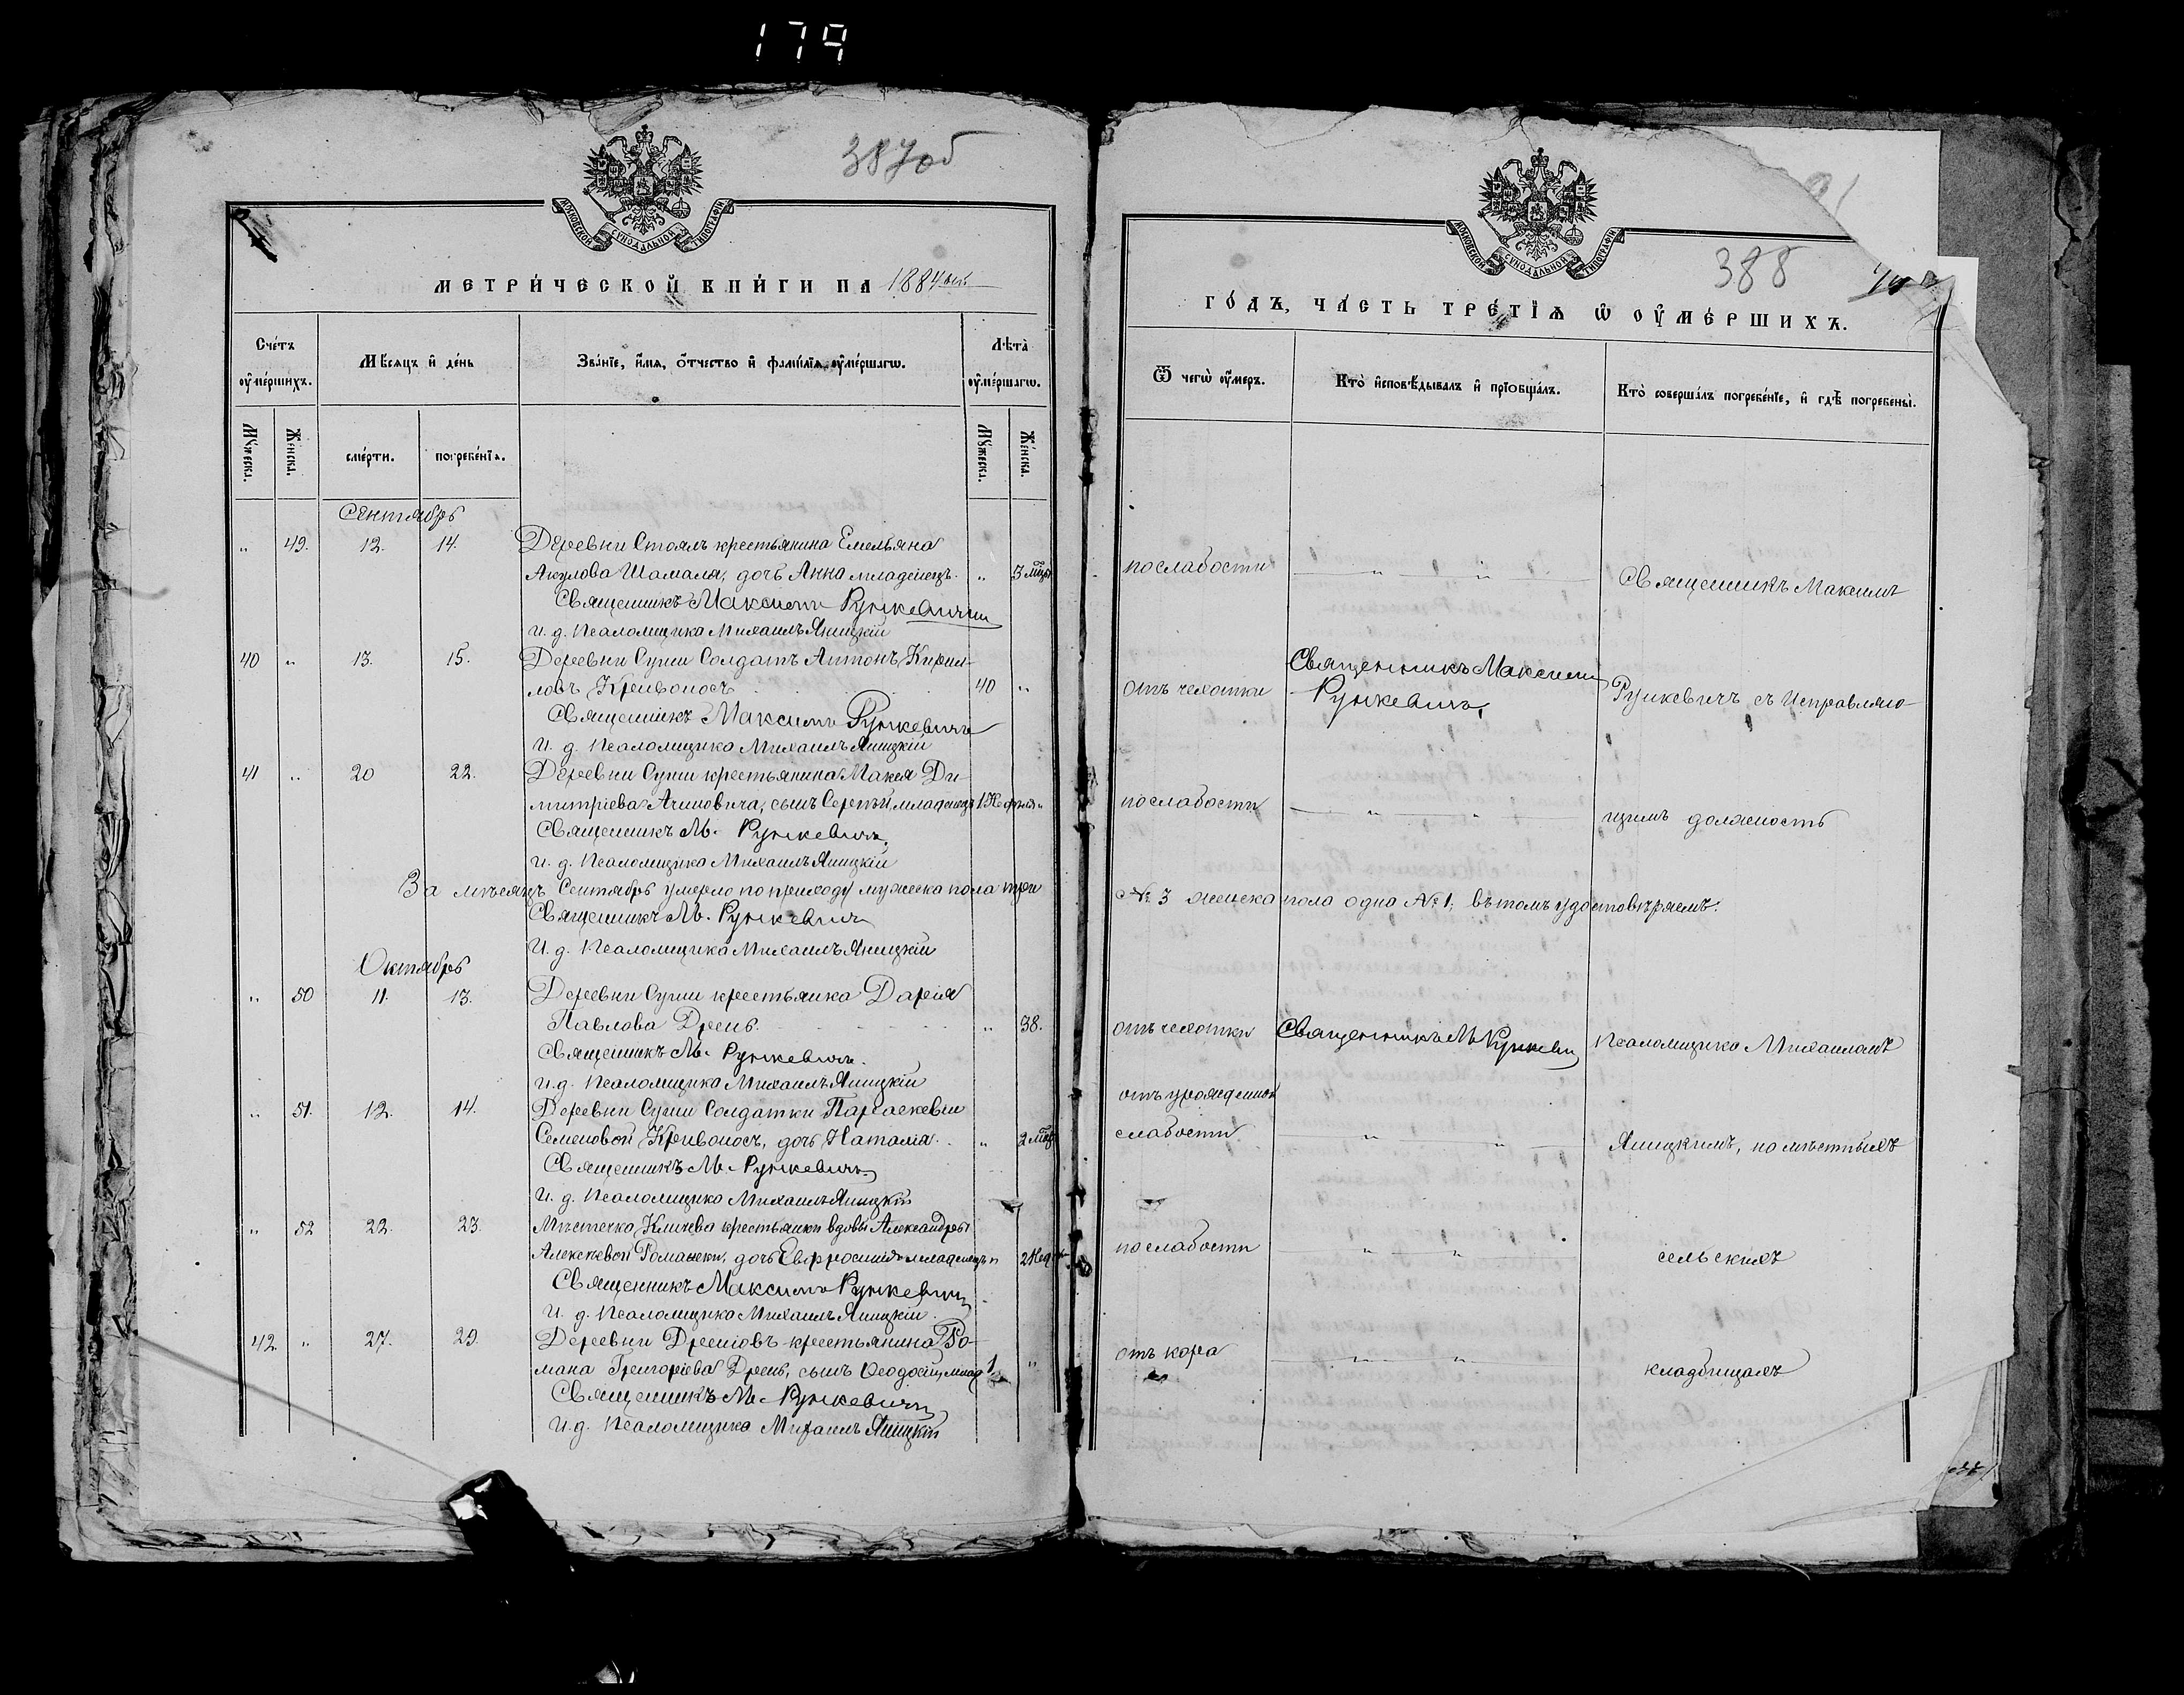 179
387об
МОСКОВСКОЙ СУНОДАЛЬНОЙ ТИПОГРАФІИ
МЕТРИ́ЧЕСКОЙ КНИ́ГИ НА 1884
Сче́тъ оу҆ме́ршихъ.
Мѣ́сяцъ и҆ де́нь
Зва́нїе, и҆́мя, ѻ҆́тчество и҆ фами́лїя оу҆ме́ршагѡ.
Лѣ́та оу҆ме́ршагѡ.
Мꙋ́жеска.
Же́нска.
сме́рти.
погребе́нїя.
Мꙋ́жеска.
Же́нска.
Сентябрь
" 49. 12. 14. Деревни Стоялъ крестьянина Емельяна
Акулова Шамаля, дочь Анна младенецъ. " 3 мѣс
Священникъ Максимъ Рункевичъ
И. д. Псаломщика Михаилъ Яницкій
40 " 13. 15. Деревни Суши Солдатъ Антонъ Кирил-
ловъ Кривоносъ 40 "
Священникъ Максимъ Рункевичъ
И. д. Псаломщика Михаилъ Яницкій
41 " 20 22. Деревни Суши крестьянина Макея Ди-
митріева Ачиновича, сынъ Сергѣй, младенецъ "
Священникъ М. Рункевичъ
И. д. Псаломщика Михаилъ Яницкій
За мѣсяцъ Сентябрь умерло по приходу мужеска пола три
Священникъ М. Рункевичъ
И. д. Псаломщика Михаилъ Яницкій
Октябрь
" 50 11. 13. Деревни Суши крестьянка Дарія
Павлова Дрень. " 38.
Священникъ М. Рункевичъ.
И. д. Псаломщика Михаилъ Яницкій
" 51. 12. 14. Деревни Суши Солдатки Параскевіи
Семеновой Кривоносъ, дочь Наталія. " 2 мѣс
Священникъ М. Рункевичъ
И. д. Псаломщика Михаилъ Яницкій
" 52 22. 23. Мѣстечка Кличева крестьянки вдовы Александры
Алексѣевой Романеки, дочь Евфросинія младенецъ " 2 Нед
Священникъ Максимъ Рункевичъ
И. д. Псаломщика Михаилъ Яницкій
42. " 27. 29. Деревни Дреновъ крестьянина Ро-
мана Григоріева Дрень, сынъ Ѳеодосій, млад 1 "
Священникъ М. Рункевичъ
И. д. Псаломщика Михаилъ Яницкій
МОСКОВСКОЙ СУНОДАЛЬНОЙ ТИПОГРАФІИ
388
ГО́ДЪ, ЧА́СТЬ ТРЕ́ТЇѦ Ѡ҆ ОУ҆МЕ́РШИХЪ.
Ѿ чегѡ̀ оу҆́меръ.
Кто̀ и҆сповѣ́дывалъ и҆ прїобща́лъ.
Кто̀ соверша́лъ погребе́нїе, и҆ гдѣ̀ погребены̀.
по слабости " " Священникъ Максимъ
отъ чахотки Священникъ Максимъ
Рункевичъ Рункевичъ съ Исправляю-
по слабости " " щимъ должность
№ 3 женска пола одна № 1, въ томъ удостовѣряемъ.
отъ чахотки Священникъ М Рункевич Псаломщика Михаиломъ
отъ урожденной
слабости " " Яницкимъ, на мѣстныхъ
по слабости " " сельскихъ
отъ кора " " кладбищахъ